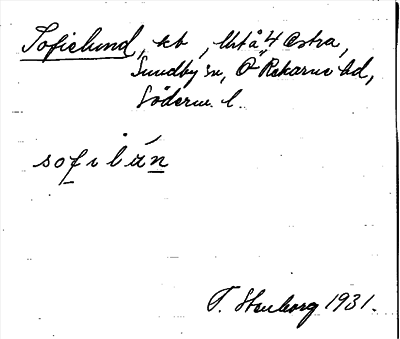 Sofielund, kb, Urtå 4 Östra,
Sundby sn, Ö Rekarne hd,
Söderm. l.
sofilån
T. Stenborg 1931.